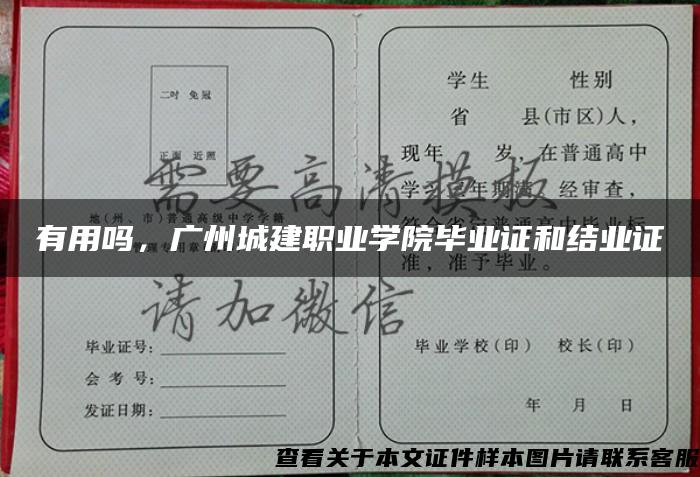 二吋 免冠
正面 近照
需要高清模板
地(州、市)普通高级中学学籍
管理专用章
请加微信
毕业证号:
会 考 号:
发证日期:
学生 性别
省 县(市区)人,
现年 岁,在普通高中
学习 年期满,经审查,
符合省定普通高中毕业标
准,准予毕业。
毕业学校(印) 校长(印)
年 月 日
有用吗，广州城建职业学院毕业证和结业证
查看关于本文证件样本图片请联系客服